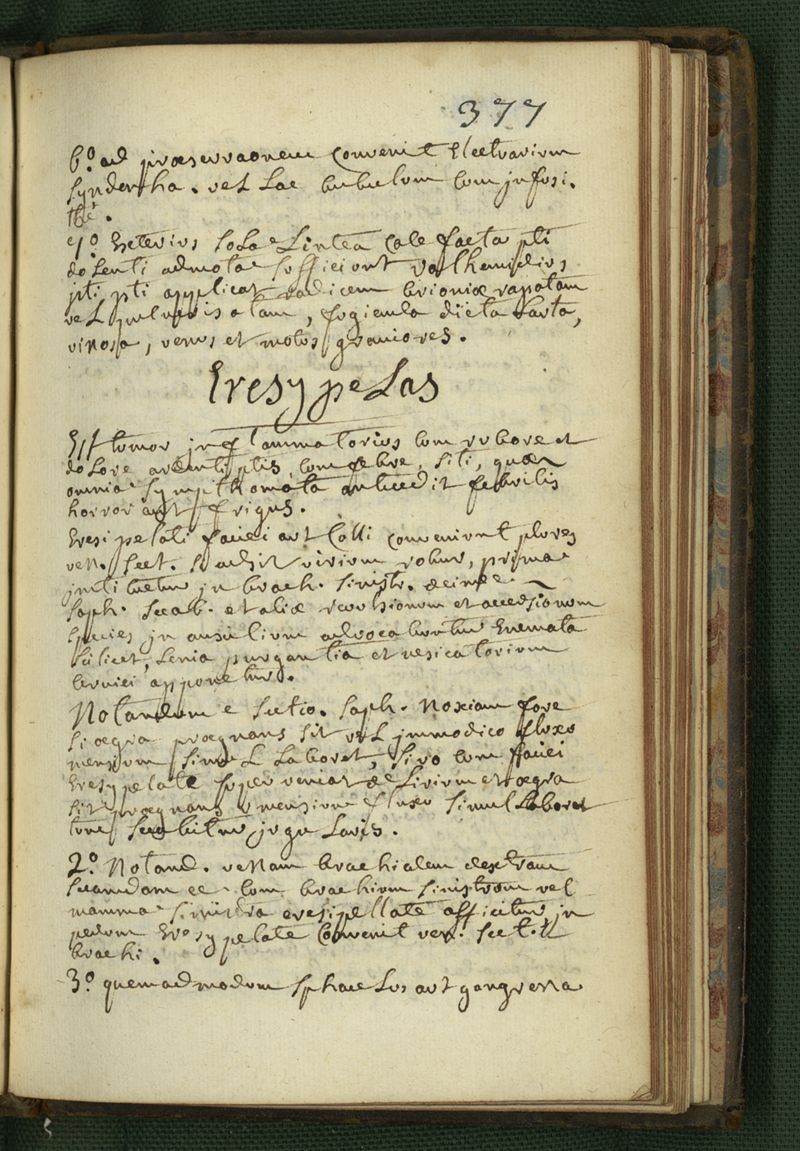 377
6.° ad præservaonem convenit Electuarium
vel Lac bubulum cum infusi.
thè.
7.° Exterius sola Lintea cale facta pti
dolenti admota sufficiunt
pti applicat radicem brioniæ rapatam
vel pulverisatam, fugienda dieta
vinosa, venus et motus graviores.
Eresypelas
Est tumor inflammatorius cum rubore et
dolore ardenti ptis, cum febre, siti, quæ
omnia sympthomata antecedit febrilis
horror aut frigus.
Eresipelati faciei aut Colli conveniunt plures
ven. sect. si adsit virium robur, prima
instituetur in brach. sinistr. deinde
saph. secab. et aliæ revulsionum et
species in auxilium advocabuntur Enemata
scilicet, Lenia purgantia et vesicatorium
cervici apponetur.
Notandum e sectio. saph. Noxiam fore
si ægra prægnans sit vel immodico fluxo
mensium simul Laboret, si vo cum faciei
Eresypelate superveniat delirium et ægra
sit prægnans v mensium fluxu simul Laboret
tunc secabitur jugularis.
2.° Notand. venam brachialem dextram
secandam ee cum brachium sinistrum vel
mamma sinistra eresipellate afficitur, in
pedum Eresypelate convenit ven. sect.
brachi.
3.° quemadmodum sphacelus aut gangrena